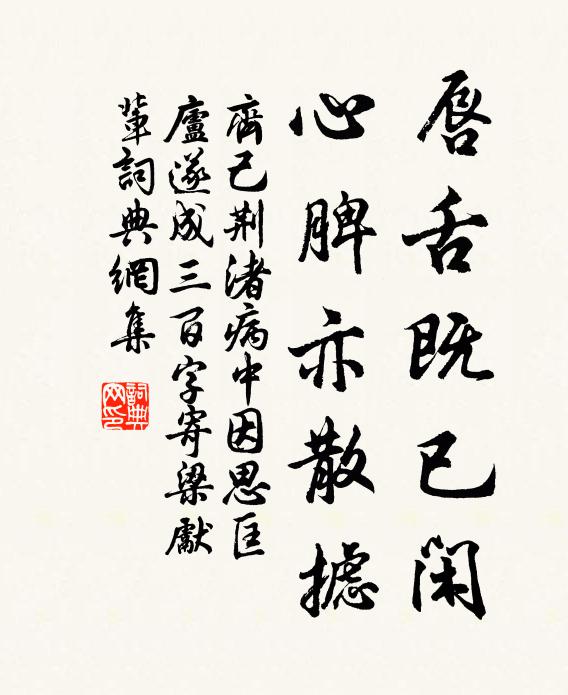 唇舌既已闲
心脾亦散摅
齊己荆渚病中因思匡
廬遂成三百字寄梁獻
輩詞典網集
詞典
网印